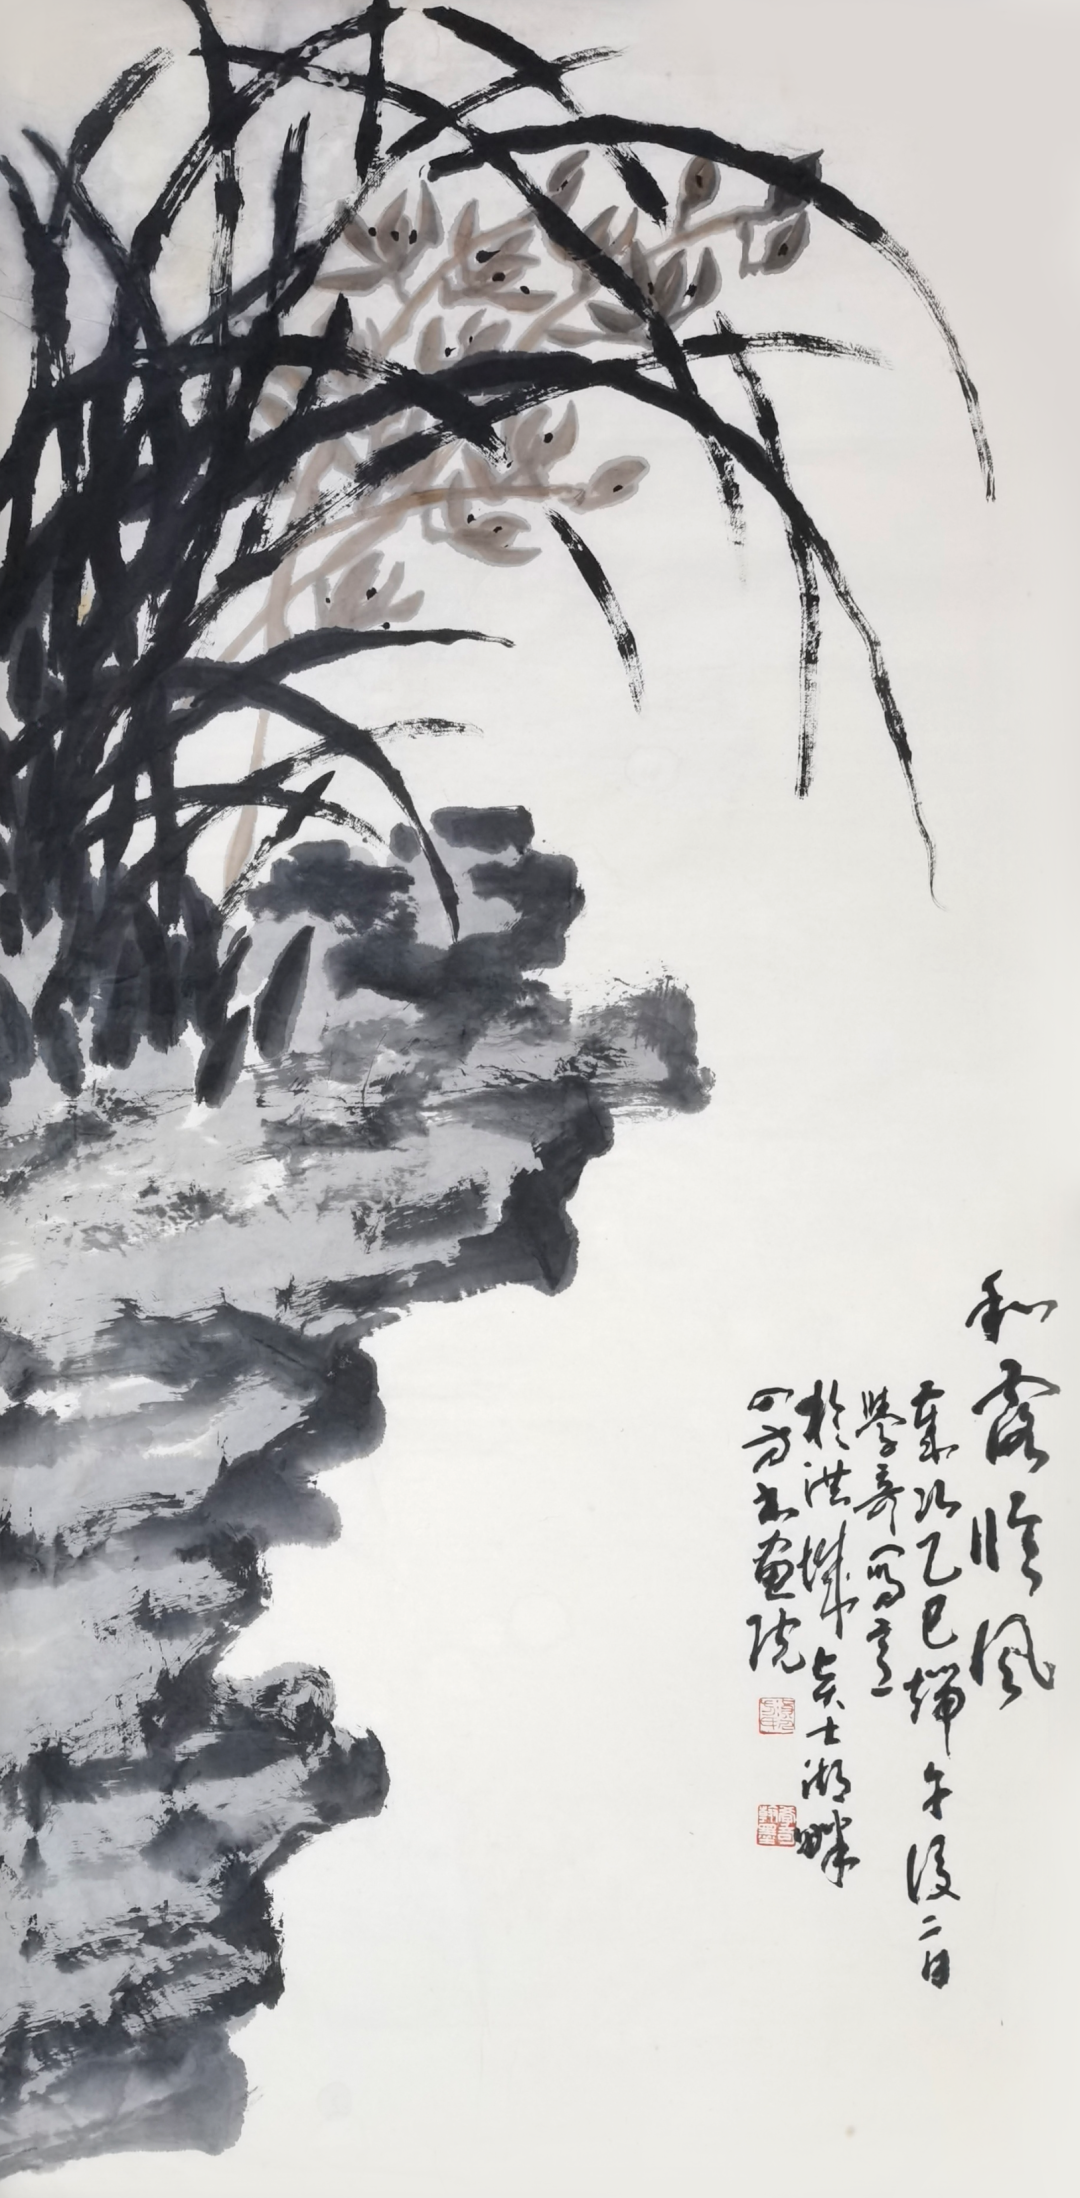 和露临风
岁次乙巳端午后二日
学奇写意
於洪城贤士湖畔
四方书画院